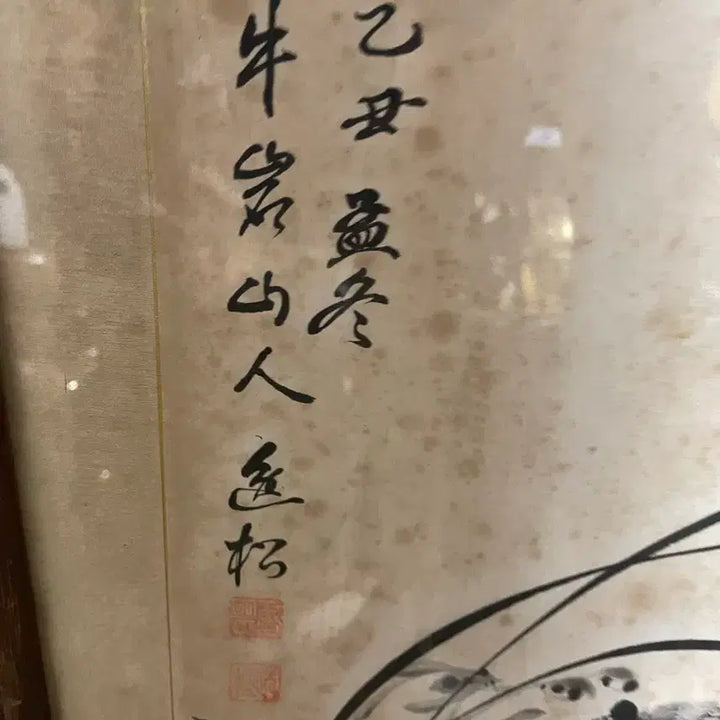 乙丑孟冬
牛岩山人進松